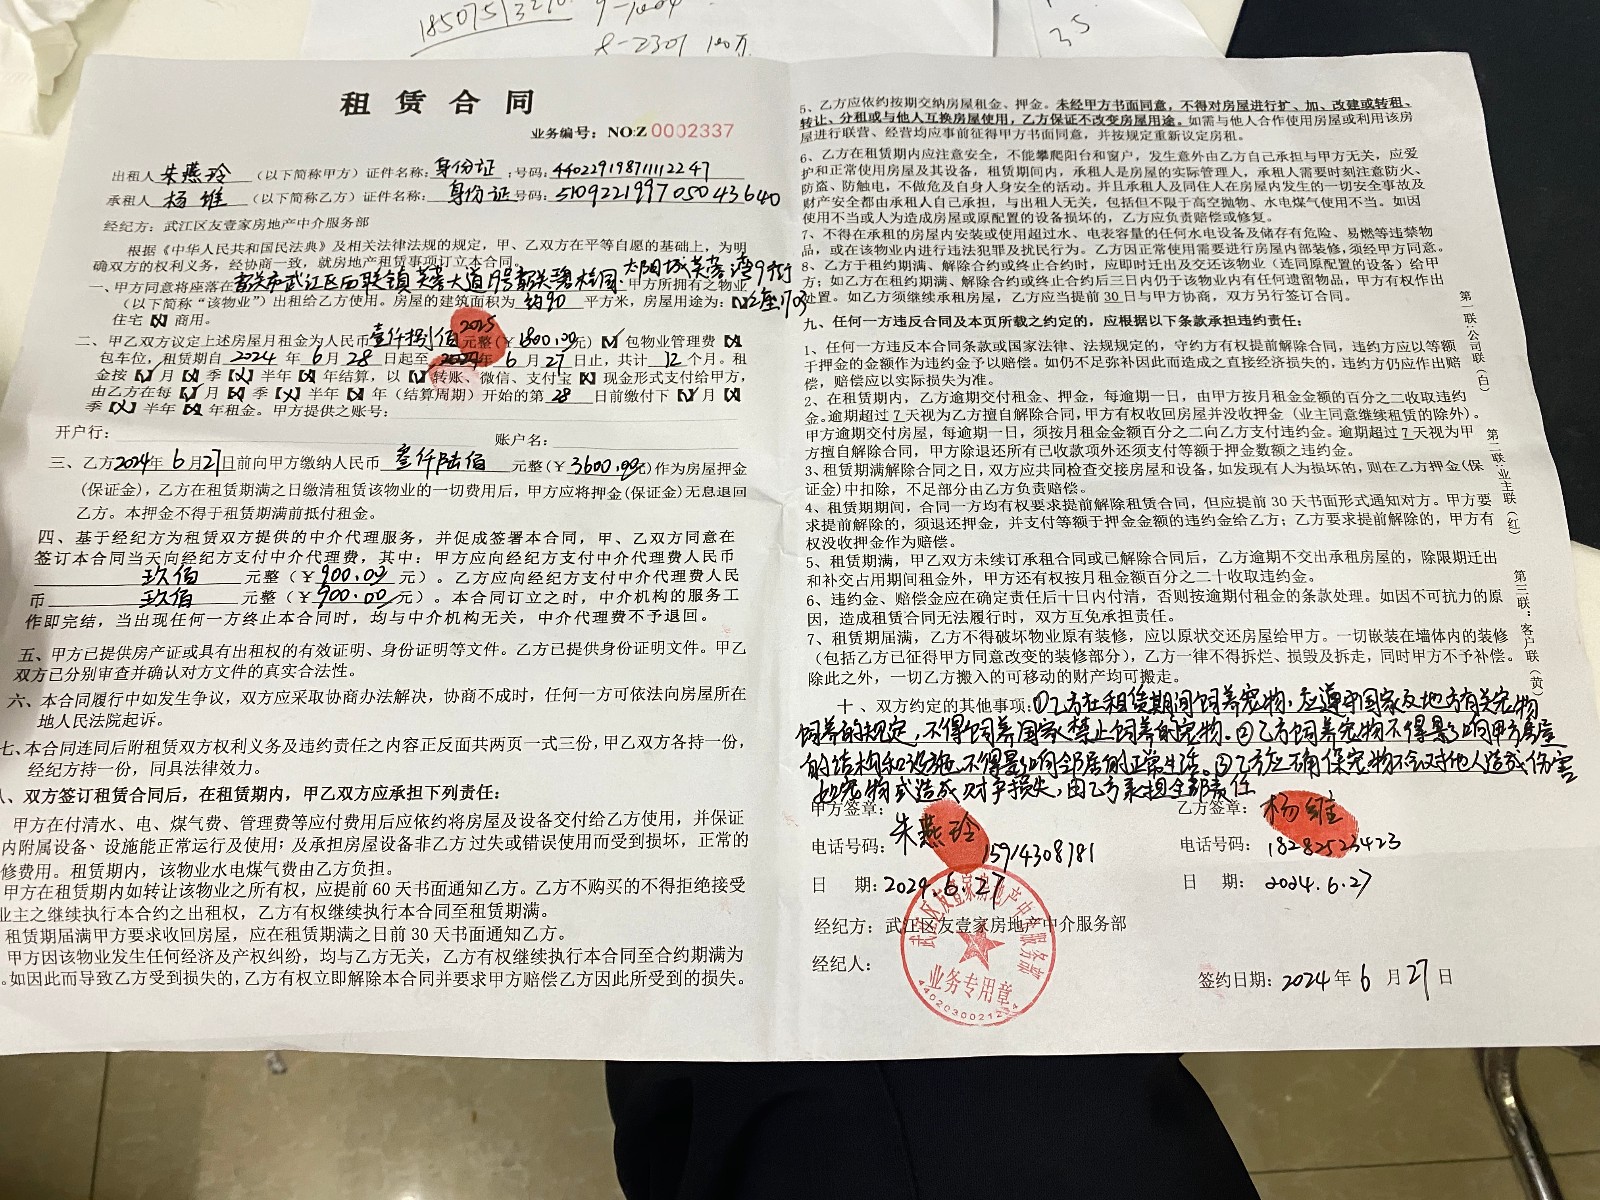 3 5
8-2301 100万
租 赁 合 同
业务编号：NO:Z 0002337
出租人 朱燕玲 （以下简称甲方）证件名称：身份证 ；号码：440229198711112247
承租人 杨维 （以下简称乙方）证件名称：身份证 号码：510922199705043640
经纪方：武江区友壹家房地产中介服务部
根据《中华人民共和国民法典》及相关法律法规的规定，甲、乙双方在平等自愿的基础上，为明
确双方的权利义务，经协商一致，就房地产租赁事项订立本合同。
一、甲方同意将座落在 韶关市武江区西联镇芙蓉大道9号韶关碧桂园太阳城芙蓉湾9街 甲方所拥有之物业
（以下简称“该物业”）出租给乙方使用。房屋的建筑面积为 约90 平方米，房屋用途为：【✓】
住宅【X】商用。
二、甲乙双方议定上述房屋月租金为人民币 壹仟捌佰 元整（￥1800.00元）【✓】包物业管理费【X】
包车位，租赁期自 2024 年 6 月 28 日起至 2025 年 6 月 27 日止，共计 12 个月。租
金按【✓】月【X】季【X】半年【X】年结算，以【✓】转账、微信、支付宝【X】现金形式支付给甲方，
由乙方在每【✓】月【X】季【X】半年【X】年（结算周期）开始的第 28 日前缴付下【✓】月【X】
季【X】半年【X】年租金。甲方提供之账号：
开户行： 账户名：
三、乙方 2024年 6 月 27日前向甲方缴纳人民币 叁仟陆佰 元整（￥3600.00元）作为房屋押金
(保证金)，乙方在租赁期满之日缴清租赁该物业的一切费用后，甲方应将押金(保证金)无息退回
乙方。本押金不得于租赁期满前抵付租金。
四、基于经纪方为租赁双方提供的中介代理服务，并促成签署本合同，甲、乙双方同意在
签订本合同当天向经纪方支付中介代理费，其中：甲方应向经纪方支付中介代理费人民币
玖佰 元整（￥900.00 元）。乙方应向经纪方支付中介代理费人民
币 玖佰 元整（￥900.00 元）。本合同订立之时，中介机构的服务工
作即完结，当出现任何一方终止本合同时，均与中介机构无关，中介代理费不予退回。
五、甲方已提供房产证或具有出租权的有效证明、身份证明等文件。乙方已提供身份证明文件。甲乙
双方已分别审查并确认对方文件的真实合法性。
六、本合同履行中如发生争议，双方应采取协商办法解决，协商不成时，任何一方可依法向房屋所在
地人民法院起诉。
七、本合同连同后附租赁双方权利义务及违约责任之内容正反面共两页一式三份，甲乙双方各持一份，
经纪方持一份，同具法律效力。
八、双方签订租赁合同后，在租赁期内，甲乙双方应承担下列责任：
甲方在付清水、电、煤气费、管理费等应付费用后应依约将房屋及设备交付给乙方使用，并保证
内附属设备、设施能正常运行及使用；及承担房屋设备非乙方过失或错误使用而受到损坏，正常的
修费用。租赁期内，该物业水电煤气费由乙方负担。
甲方在租赁期内如转让该物业之所有权，应提前 60 天书面通知乙方。乙方不购买的不得拒绝接受
业主之继续执行本合约之出租权，乙方有权继续执行本合同至租赁期满。
租赁期届满甲方要求收回房屋，应在租赁期满之日前 30 天书面通知乙方。
甲方因该物业发生任何经济及产权纠纷，均与乙方无关，乙方有权继续执行本合同至合约期满为
。如因此而导致乙方受到损失的，乙方有权立即解除本合同并要求甲方赔偿乙方因此所受到的损失。
5、乙方应依约按期交纳房屋租金、押金。未经甲方书面同意，不得对房屋进行扩、加、改建或转租、
转让、分租或与他人互换房屋使用，乙方保证不改变房屋用途。如需与他人合作使用房屋或利用该房
屋进行联营、经营均应事前征得甲方书面同意，并按规定重新议定房租。
6、乙方在租赁期内应注意安全，不能攀爬阳台和窗户，发生意外由乙方自己承担与甲方无关，应爱
护和正常使用房屋及其设备，租赁期间内，承租人是房屋的实际管理人，承租人需要时刻注意防火、
防盗、防触电，不做危及自身人身安全的活动。并且承租人及同住人在房屋内发生的一切安全事故及
财产安全都由承租人自己承担，与出租人无关，包括但不限于高空抛物、水电煤气使用不当。如因
使用不当或人为造成房屋或原配置的设备损坏的，乙方应负责赔偿或修复。
7、不得在承租的房屋内安装或使用超过水、电表容量的任何水电设备及储存有危险、易燃等违禁物
品，或在该物业内进行违法犯罪及扰民行为。乙方因正常使用需要进行房屋内部装修，须经甲方同意。
8、乙方于租约期满、解除合约或终止合约时，应即时迁出及交还该物业（连同原配置的设备）给甲
方；如乙方在租约期满、解除合约或终止合约后三日内仍于该物业内有任何遗留物品，甲方有权作出
处置。如乙方须继续承租房屋，乙方应当提前 30 日与甲方协商，双方另行签订合同。
九、任何一方违反合同及本页所载之约定的，应根据以下条款承担违约责任：
1、任何一方违反本合同条款或国家法律、法规规定的，守约方有权提前解除合同，违约方应以等额
于押金的金额作为违约金予以赔偿。如仍不足弥补因此而造成之直接经济损失的，违约方仍应作出赔
偿，赔偿应以实际损失为准。
2、在租赁期内，乙方逾期交付租金、押金，每逾期一日，由甲方按月租金金额的百分之二收取违约
金。逾期超过 7 天视为乙方擅自解除合同，甲方有权收回房屋并没收押金（业主同意继续租赁的除外）。
甲方逾期交付房屋，每逾期一日，须按月租金金额百分之二向乙方支付违约金。逾期超过 7 天视为甲
方擅自解除合同，甲方除退还所有已收款项外还须支付等额于押金数额之违约金。
3、租赁期满解除合同之日，双方应共同检查交接房屋和设备，如发现有人为损坏的，则在乙方押金(保
证金)中扣除，不足部分由乙方负责赔偿。
4、租赁期期间，合同一方均有权要求提前解除租赁合同，但应提前 30 天书面形式通知对方。甲方要
求提前解除的，须退还押金，并支付等额于押金金额的违约金给乙方；乙方要求提前解除的，甲方有
权没收押金作为赔偿。
5、租赁期满，甲乙双方未续订承租合同或已解除合同后，乙方逾期不交出承租房屋的，除限期迁出
和补交占用期间租金外，甲方还有权按月租金额百分之二十收取违约金。
6、违约金、赔偿金应在确定责任后十日内付清，否则按逾期付租金的条款处理。如因不可抗力的原
因，造成租赁合同无法履行时，双方互免承担责任。
7、租赁期届满，乙方不得破坏物业原有装修，应以原状交还房屋给甲方。一切嵌装在墙体内的装修
（包括乙方已征得甲方同意改变的装修部分），乙方一律不得拆烂、损毁及拆走，同时甲方不予补偿。
除此之外，一切乙方搬入的可移动的财产均可搬走。
十、双方约定的其他事项：①乙方在租赁期间饲养宠物，应遵守国家及地方有关宠物
饲养的规定，不得饲养国家禁止饲养的宠物。②乙方饲养宠物不得影响甲方房屋
的结构和设施，不得影响邻居的正常生活。③乙方应确保宠物不会对他人造成伤害
如宠物或造成财产损失，由乙方承担全部责任
甲方签章：朱燕玲
乙方签章：杨维
电话号码：15914308781
电话号码：18282523423
日 期：2024.6.27
日 期：2024.6.27
经纪方：武江区友壹家房地产中介服务部
经纪人：
签约日期：2024 年 6 月 27 日
武江区友壹家房地产中介服务部
业务专用章
4402030021234
第一联：公司联（白）
第二联：业主联（红）
第三联：客户联（黄）